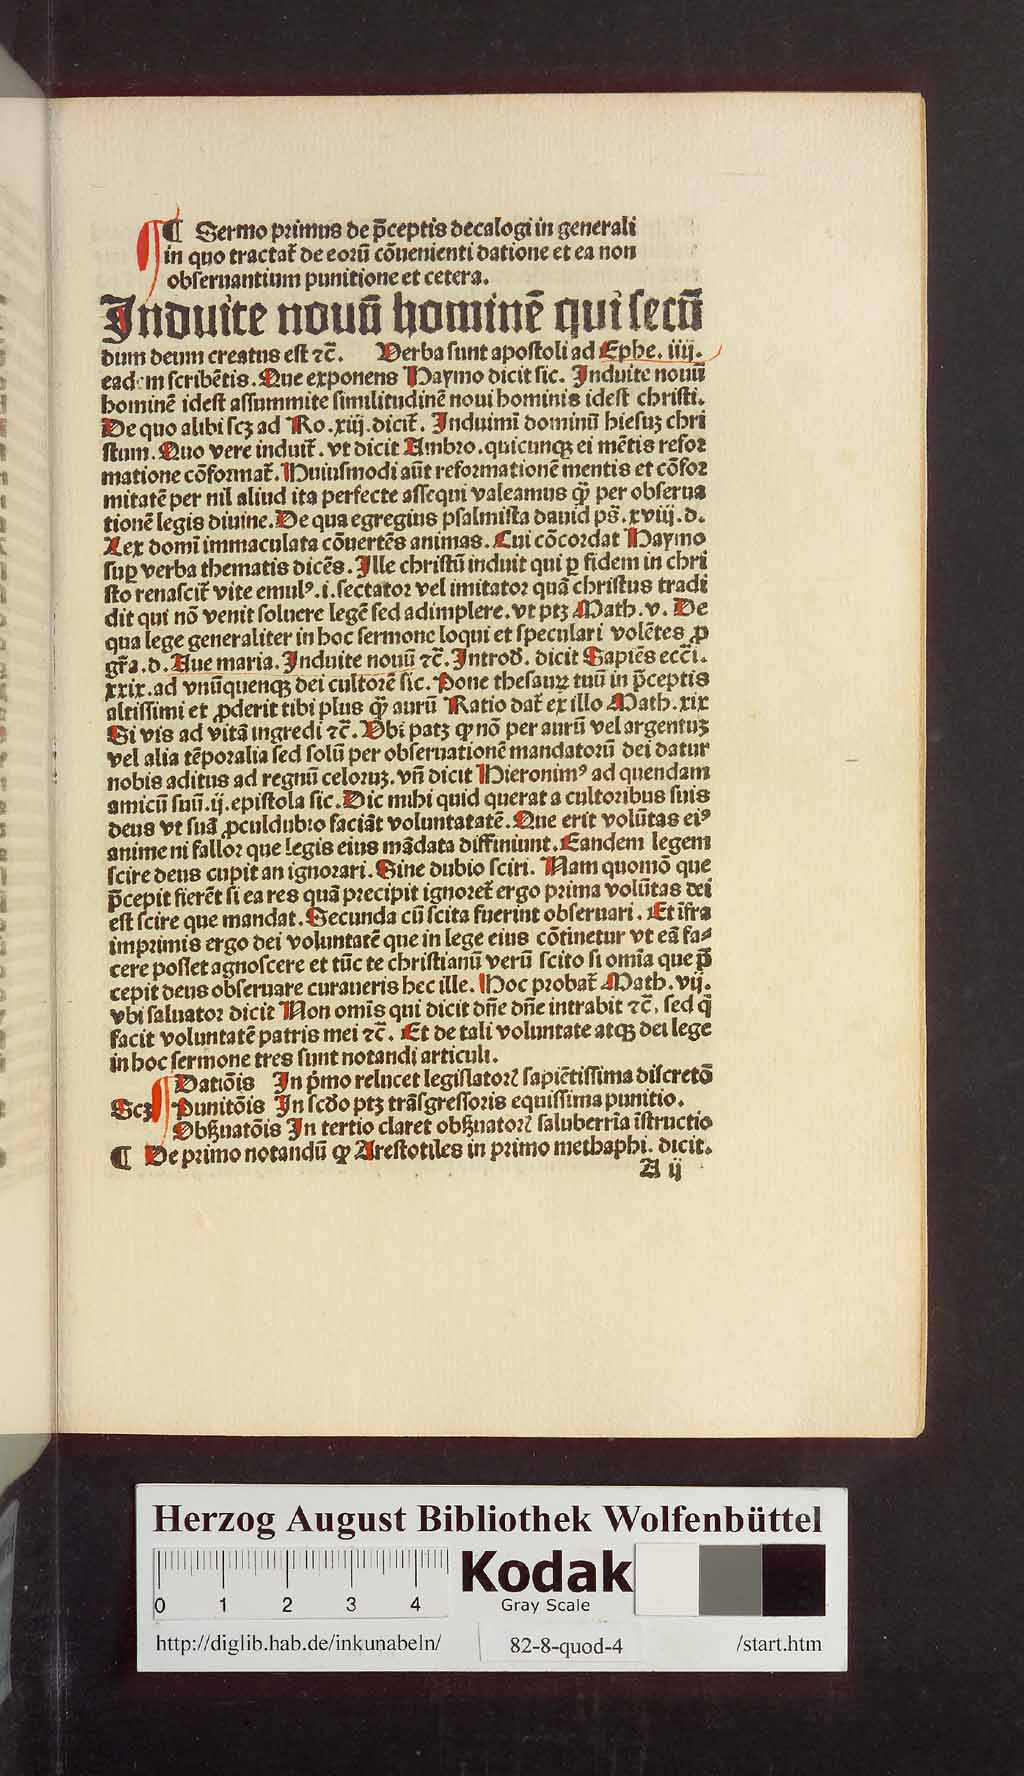 ¶ Sermo primus de p̄ceptis decalogi in generali
in quo tractat᷑ de eorū cōuenienti datione et ea non
obseruantium punitione et cetera.
Induite nouū hominē qui secū
dum deum creatus est ⁊c̄. Verba sunt apostoli ad Ephe. iiij.
eadem scribētis. Que exponens Haymo dicit sic. Induite nouū
hominē idest assummite similitudinē noui hominis idest christi.
De quo alibi scꝫ ad Ro. xiij. dicit᷑. Induimī dominū hiesuꝫ chri
stum. Quo vere induit᷑. vt dicit Ambro. quicunqꝫ ei mētis refor
matione cōformat᷑. Huiusmodi aūt reformationē mentis et cōfor
mitatē per nil aliud ita perfecte assequi valeamus ꝙ̄ per obserua
tionē legis diuine. De qua egregius psalmista dauid ps̄. xviij. d.
Lex domī immaculata cōuertēs animas. Cui cōcordat Haymo
suꝑ verba thematis dicēs. Ille christū induit qui ꝑ fidem in chri
sto renascit᷑ vite emulꝰ. i. sectator vel imitator quā christus tradi
dit qui nō venit soluere legē sed adimplere. vt ptꝫ Math. v. De
qua lege generaliter in hoc sermone loqui et speculari volētes ꝓ
gr̄a. d. Aue maria. Induite nouū ⁊c̄. Introd. dicit Sapiēs ecc̄i.
xxix. ad vnūquenqꝫ dei cultorē sic. Pone thesauꝝ tuū in p̄ceptis
altissimi et ꝓderit tibi plus ꝙ̄ aurū Ratio dat᷑ ex illo Math. xix
Si vis ad vitā ingredi ⁊c̄. Vbi patꝫ ꝙ nō per aurū vel argentuꝫ
vel alia tēporalia sed solū per obseruationē mandatorū dei datur
nobis aditus ad regnū celoruꝫ. vn̄ dicit Hieronimꝰ ad quendam
amicū suū. ij. epistola sic. Dic mihi quid querat a cultoribus suis
deus vt suā ꝓculdubio faciāt voluntatatē. Que erit volūtas eiꝰ
anime ni fallor que legis eius mādata diffiniunt. Eandem legem
scire deus cupit an ignorari. Sine dubio sciri. Nam quomō que
p̄cepit fierēt si ea res quā precipit ignoret᷑ ergo prima volūtas dei
est scire que mandat. Secunda cū scita fuerint obseruari. Et īfra
imprimis ergo dei voluntatē que in lege eius cōtinetur vt eā fa⸗
cere posset agnoscere et tūc te christianū verū scito si omīa que p̄
cepit deus obseruare curaueris hec ille. Hoc probat᷑ Math. vij.
vbi saluator dicit Non omīs qui dicit dn̄e dn̄e intrabit ⁊c̄. sed q̄
facit voluntatē patris mei ⁊c̄. Et de tali voluntate atqꝫ dei lege
in hoc sermone tres sunt notandi articuli.
Datiōis In p̄mo relucet legislatorꝭ sapiētissima discretō
Scꝫ Punitōis In scd̄o ptꝫ trāsgressoris equissima punitio.
Obẜuatōis In tertio claret obẜuatorꝭ saluberrīa īstructio
¶ De primo notandū ꝙ Arestotiles in primo methaphi. dicit.
A ij
Herzog August Bibliothek Wolfenbüttel
0 1 2 3 4
Kodak
Gray Scale
http://diglib.hab.de/inkunabeln/ 82-8-quod-4 /start.htm